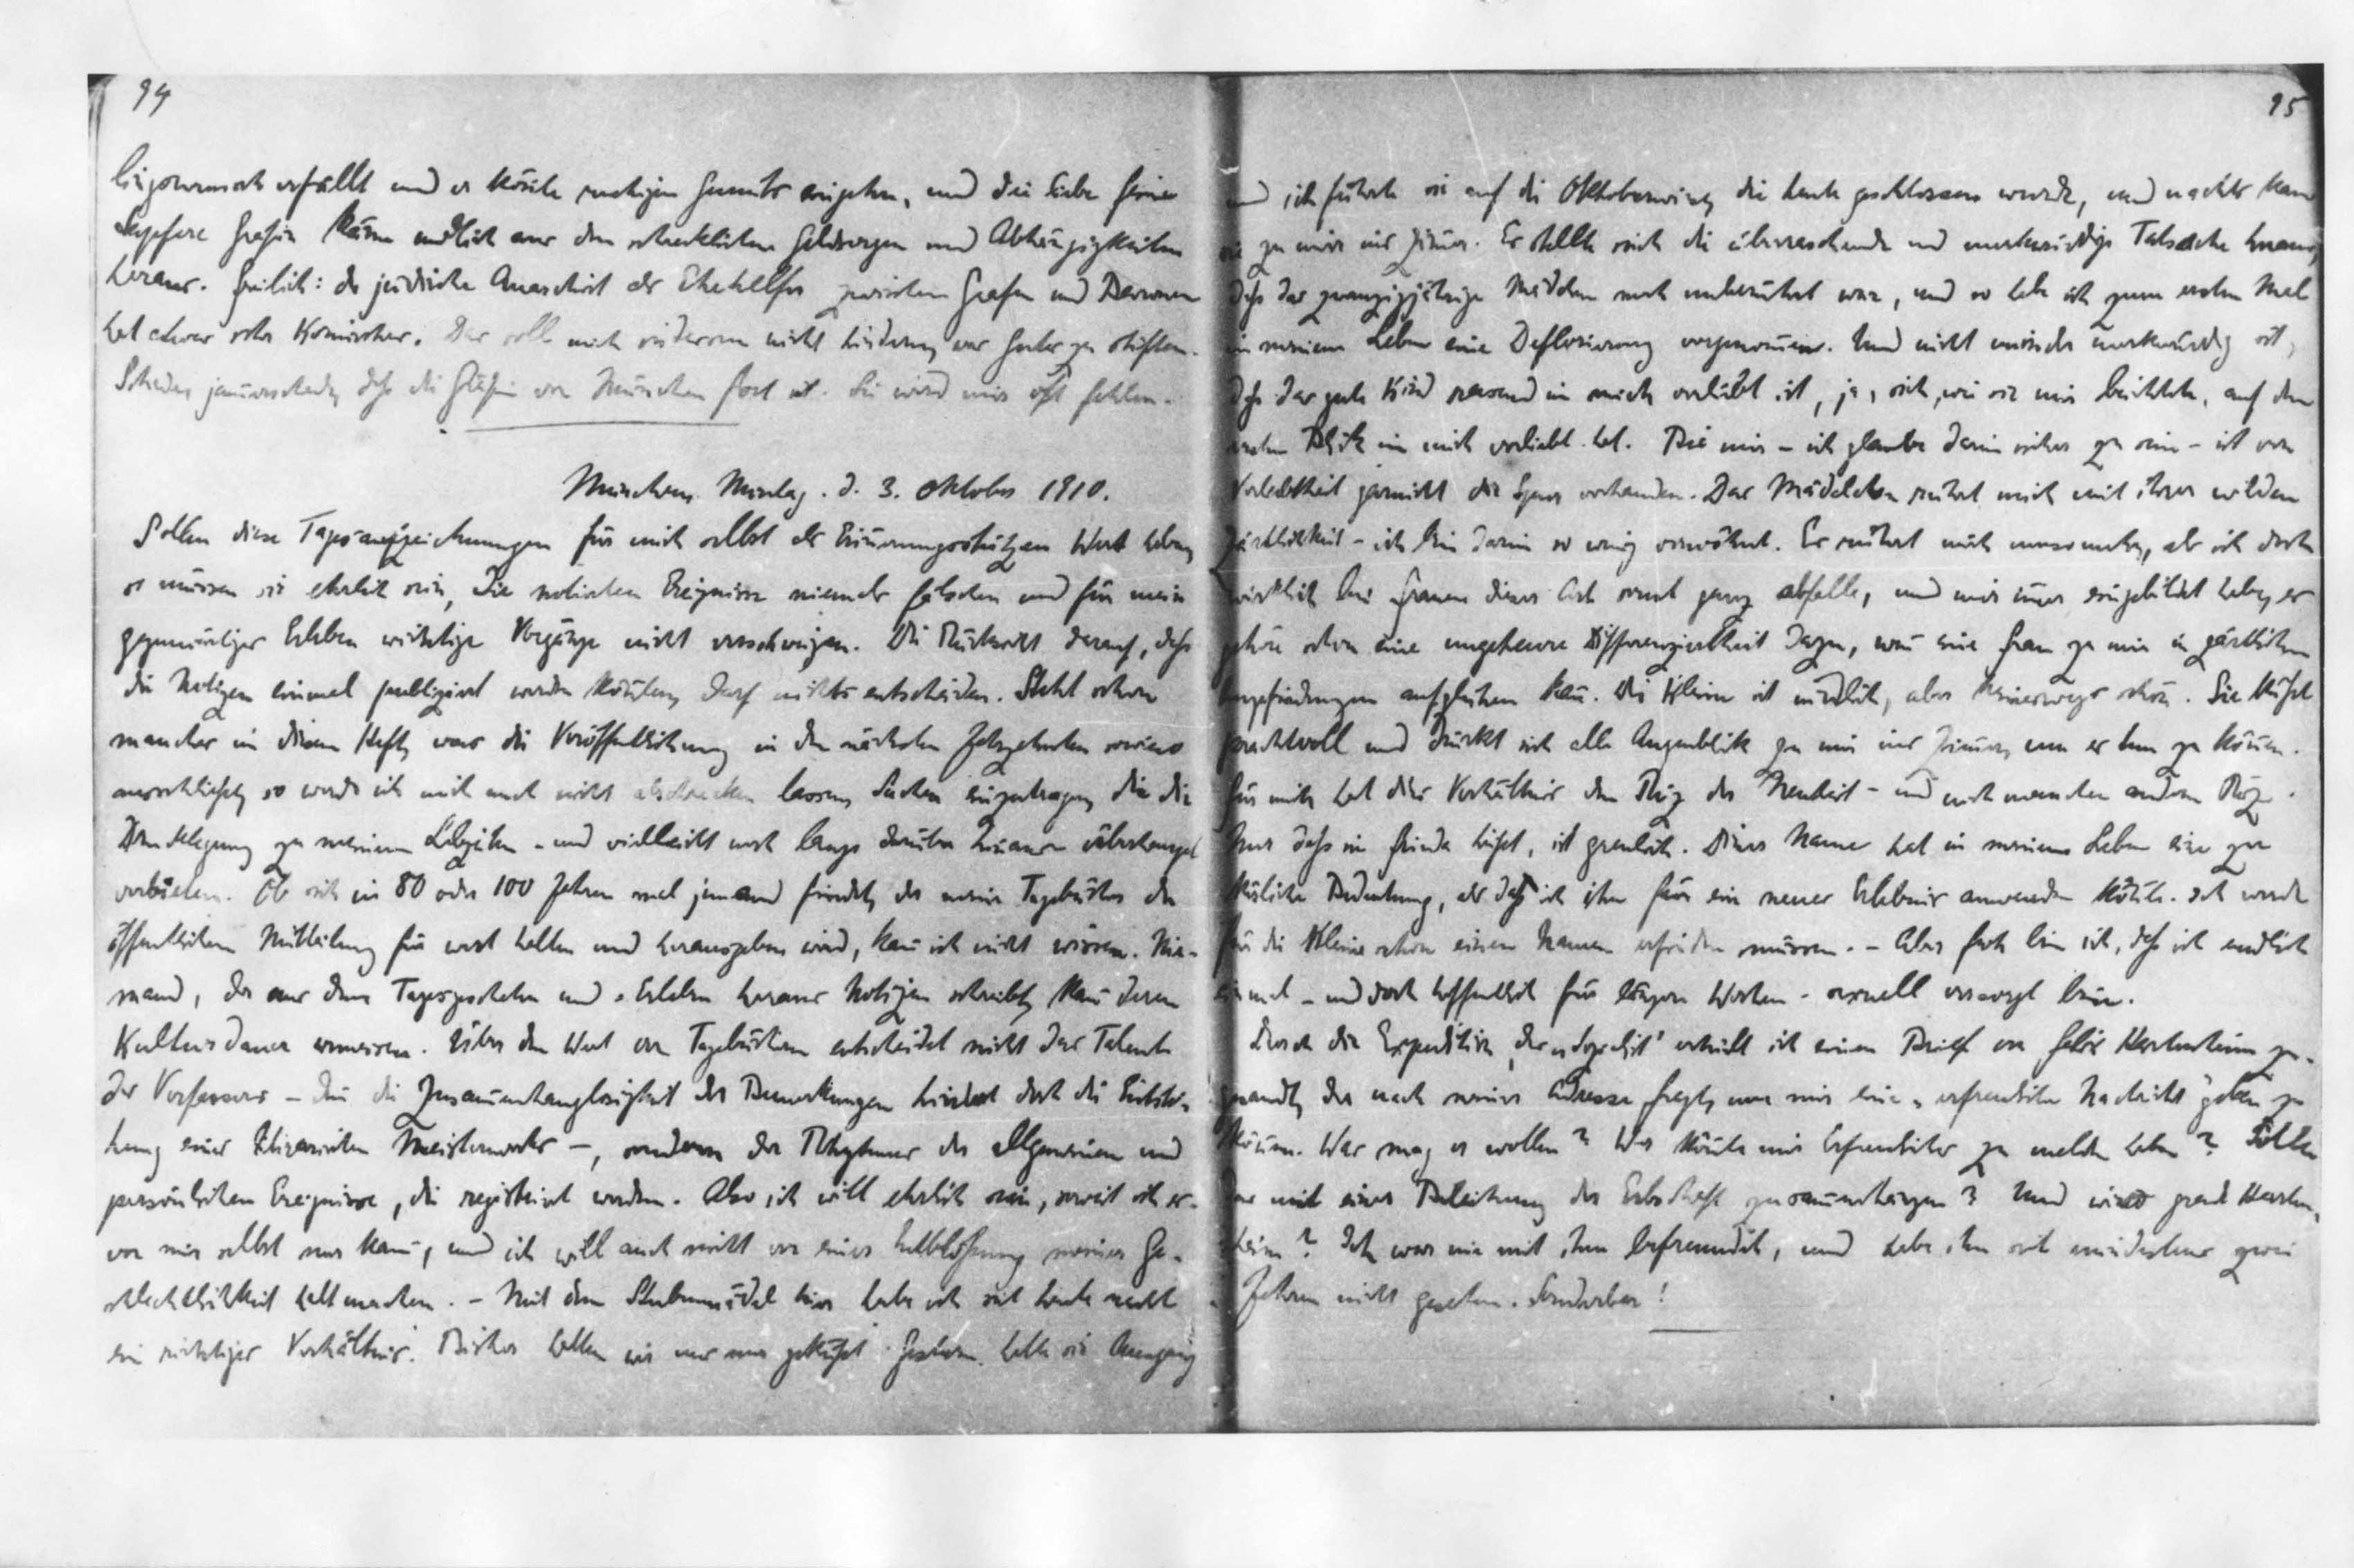 94
lingswunsch erfüllt und er könnte ruhigen Gemüts eingehen, und die liebe feine
tapfere Gräfin käme endlich aus den schrecklichen Geldsorgen und Abhängigkeiten
heraus. Freilich: der jüdische Anarchist als Ehehelfer zwischen Grafen und Baronen
hat etwas sehr Komisches. Das soll mich indessen nicht hindern, was Gutes zu stiften.
Schade, jammerschade, daß die Gräfin von München fort ist. Sie wird mir oft fehlen.
München, Montag. d. 3. Oktober 1910.
Sollen diese Tagesaufzeichnungen für mich selbst als Erinnerungsstützen Wert haben,
so müssen sie ehrlich sein, die notierten Ereignisse niemals fälschen und für mein
gegenwärtiges Erleben wichtige Vorgänge nicht verschweigen. Die Rücksicht darauf, daß
die Notizen einmal publiziert werden könnten, darf nichts entscheiden. Steht schon
manches in diesem Heft, was die Veröffentlichung in den nächsten Jahrzehnten sowieso
ausschließt, so werde ich mich auch nicht abschrecken lassen, Sachen einzutragen, die die
Drucklegung zu meinen Lebzeiten – und vielleicht noch lange darüber hinaus überhaupt
verbieten. Ob sich in 80 oder 100 Jahren mal jemand findet, der meine Tagebücher der
öffentlichen Mitteilung für wert halten und herausgeben wird, kann ich nicht wissen. Nie-
mand, der aus dem Tagesgeschehen und -Erleben heraus Notizen schreibt, kann deren
Kulturdauer ermessen. Über den Wert von Tagebüchern entscheidet nicht das Talent
des Verfassers – denn die Zusammenhanglosigkeit der Bemerkungen hindert doch die Entste-
hung eines literarischen Meisterwerks –, sondern der Rhythmus der allgemeinen und
persönlichen Ereignisse, die registriert werden. Also ich will ehrlich sein, soweit ich es
vor mir selbst nur kann, und ich will auch nicht vor einer Entblößung meiner Ge-
schlechtlichkeit haltmachen. – Mit dem Stubenmädel hier habe ich seit heute nacht
ein richtiges Verhältnis. Bisher hatten wir uns nur geküßt. Gestern hatte sie Ausgang
95
und ich führte sie auf die Oktoberwiese, die heute geschlossen wurde, und nachts kam
sie zu mir ins Zimmer. Es stellte sich die überraschende und merkwürdige Tatsache heraus,
daß das zwanzigjährige Mädchen noch unberührt war, und so habe ich zum ersten Mal
in meinem Leben eine Deflorierung vorgenommen. Und nicht minder merkwürdig ist,
daß das gute Kind rasend in mich verliebt ist, ja, sich, wie sie mir beichtete, auf den
ersten Blick in mich verliebt hat. Bei mir – ich glaube darin sicher zu sein – ist von
Verliebtheit garnicht die Spur vorhanden. Das Mädelchen rührt mich mit ihrer wilden
Zärtlichkeit – ich bin darin so wenig verwöhnt. Es rührt mich umsomehr, als ich doch
wirklich bei Frauen dieser Art sonst ganz abfalle, und mir immer eingebildet habe, es
gehöre schon eine ungeheure Differenziertheit dazu, wenn eine Frau zu mir in zärtlichen
Empfindungen aufglühen kann. Die Kleine ist niedlich, aber keineswegs schön. Sie küßt
prachtvoll und drückt sich alle Augenblick zu mir ins Zimmer, um es tun zu können.
Für mich hat dies Verhältnis den Reiz der Neuheit – und noch manchen andern Reiz.
Nur daß sie Frieda heißt, ist greulich. Dieser Name hat in meinem Leben eine zu
köstliche Bedeutung, als daß ich ihn für ein neues Erlebnis anwenden könnte. Ich werde
für die Kleine schon einen Namen erfinden müssen. – Aber froh bin ich, daß ich endlich
einmal – und doch hoffentlich für längere Wochen – sexuell versorgt bin.
Durch die Expedition des „Sozialist“ erhielt ich einen Brief von Felix Hartenstein zu-
gesandt, der nach meiner Adresse fragt, um mir eine „erfreuliche Nachricht“ geben zu
können. Was mag er wollen? Was könnte mir Erfreuliches zu melden haben? Sollte
das mit einer Beleihung der Erbschaft zusammenhängen? Und wieso grade Harten-
stein? Ich war nie mit ihm befreundet, und habe ihn seit mindestens zwei
Jahren nicht gesehen. Sonderbar!